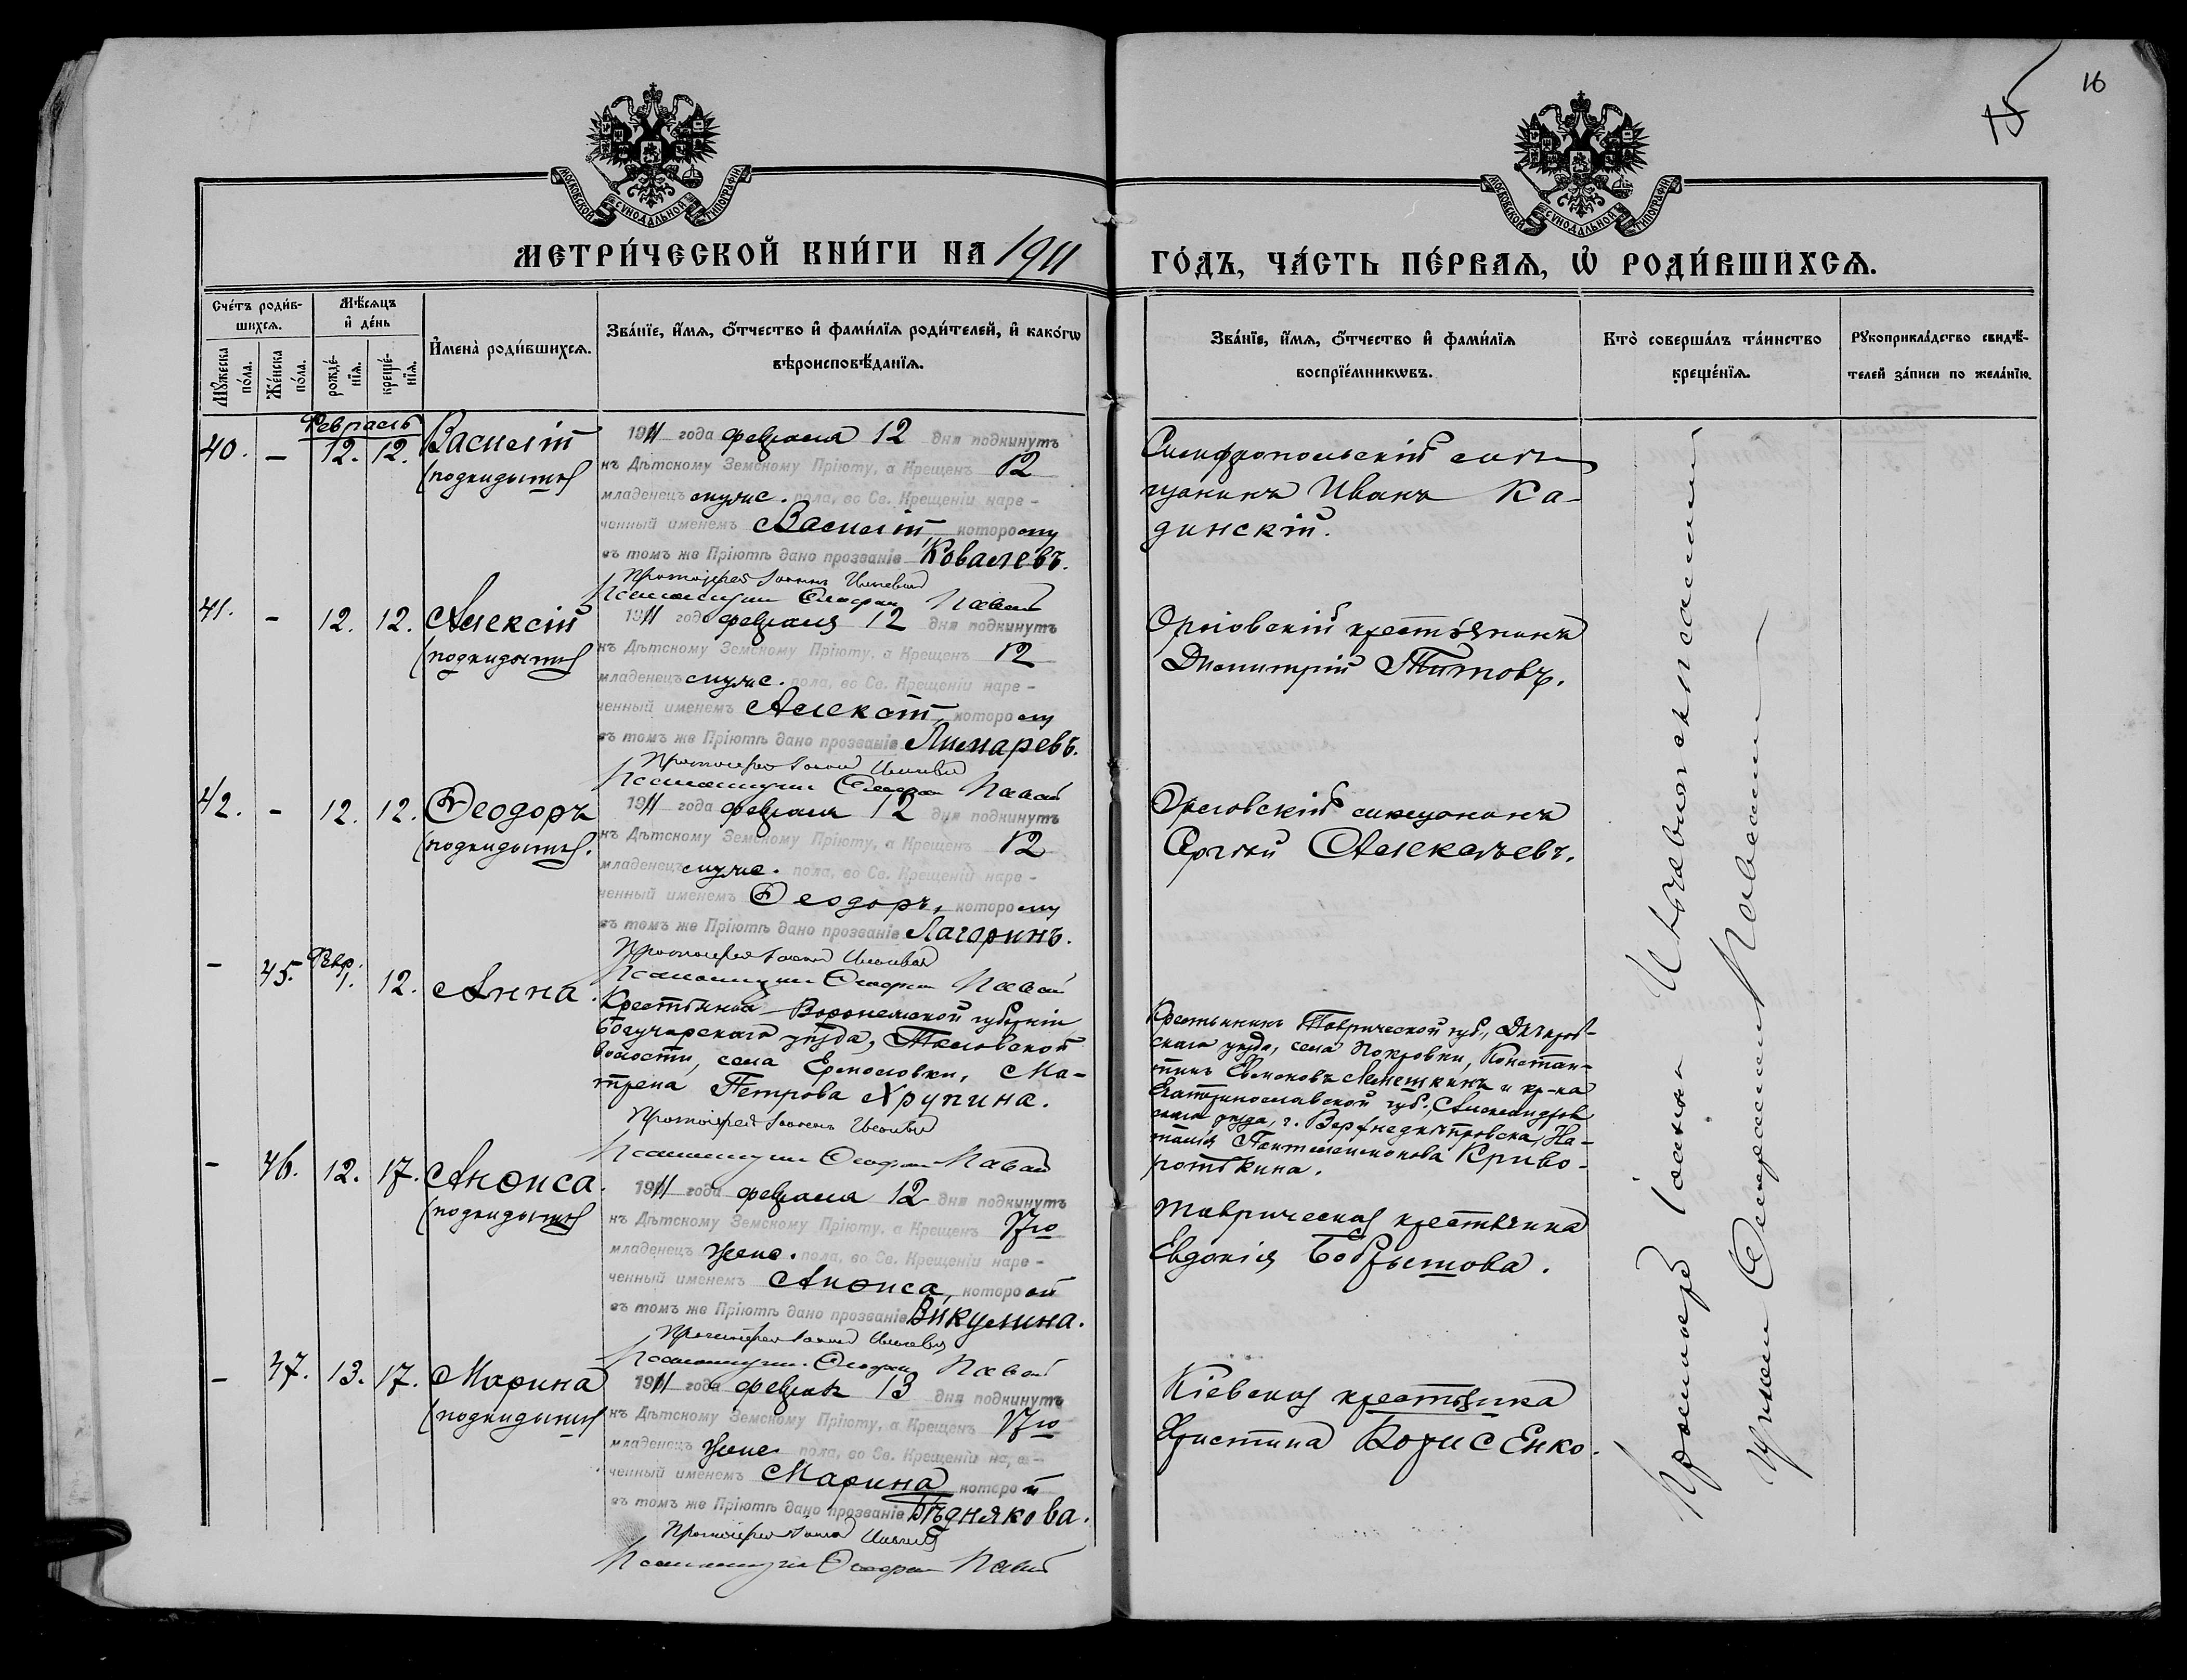 16
15
МОСКОВСКОЙ СѴНОДАЛЬНОЙ ТИПОГРАФІИ
МОСКОВСКОЙ СѴНОДАЛЬНОЙ ТИПОГРАФІИ
МЕТРИ́ЧЕСКОЙ КНИ́ГИ НА 1911
ГО́ДЪ, ЧА́СТЬ ПЕ́РВАЯ, Ѡ РОДИ́ВШИХСЯ.
Сче́тъ роди́в-
шихся.
Мꙋ́жеска по́ла.
Же́нска по́ла.
Мѣ́сяцъ
и де́нь
рожде́-
нія.
креще́-
нія.
Имена̀ роди́вшихся.
Зва́ніе, и́мя, о́тчество и фами́лія роди́телей, и како́гѡ
вѣроисповѣ́данія.
Зва́ніе, и́мя, о́тчество и фами́лія
воспріе́мникѡвъ.
Кто̀ соверша́лъ та́инство
креще́нія.
Рꙋкоприкла́дство свидѣ́-
телей за́писи по жела́нію.
Февраль
40. - 12. 12. Василій
(подкидышъ)
1911 года февраля 12 дня подкинутъ
къ Дѣтскому Земскому Пріюту, а Крещенъ 12
младенецъ муже. пола, во Св. Крещеніи наре-
ченный именемъ Василій, которому
въ томъ же Пріютѣ дано прозваніе Ковалевъ.
Протоіерей Іоаннъ
Симферопольскій мѣща-
нинъ Иванъ Ка-
динскій.
41. - 12. 12. Алексій
(подкидышъ)
1911 года февраля 12 дня подкинутъ
къ Дѣтскому Земскому Пріюту, а Крещенъ 12
младенецъ муже. пола, во Св. Крещеніи наре-
ченный именемъ Алексій, которому
въ томъ же Пріютѣ дано прозваніе Лимаревъ.
Протоіерей Іоаннъ
Орловскій крестьянинъ
Димитрій Титовъ.
42. - 12. 12. Ѳеодоръ
(подкидышъ).
1911 года февраля 12 дня подкинутъ
къ Дѣтскому Земскому Пріюту, а Крещенъ 12
младенецъ муже. пола, во Св. Крещеніи наре-
ченный именемъ Ѳеодоръ, которому
въ томъ же Пріютѣ дано прозваніе Лагоринъ.
Протоіерей Іоаннъ
Орловскій мѣщанинъ
Сергѣй
- 45. Февр. 1. 12. Анна.
Крестьянка Воронежской губерніи
Богучарскаго уѣзда, Таловской
волости, села Ермоловки, Ма-
трена Петрова Хрупина.
Протоіерей Іоаннъ
Крестьянинъ Таврической губ., Днѣпров-
скаго уѣзда, села Покровки, Констан-
тинъ и кр-ка
Екатеринославской губ., Александров
скаго уѣзда, г. Верхнеднѣпровска, На-
талія Пантелеимонова Криво-
ротькина.
- 46. 12. 17. Анѳиса.
(подкидышъ)
1911 года февраля 12 дня подкинутъ
къ Дѣтскому Земскому Пріюту, а Крещенъ 17го
младенецъ женс. пола, во Св. Крещеніи наре-
ченный именемъ Анѳиса, которой
въ томъ же Пріютѣ дано прозваніе Викулина.
Протоіерей Іоаннъ
Таврическая крестьянка
Евдокія Бобрышова.
- 47. 13. 17. Марина
(подкидышъ)
1911 года февраля 13 дня подкинутъ
къ Дѣтскому Земскому Пріюту, а Крещенъ 17го
младенецъ женс. пола, во Св. Крещеніи наре-
ченный именемъ Марина которой
въ томъ же Пріютѣ дано прозваніе Бѣднякова.
Протоіерей Іоаннъ
Кіевская крестьянка
Христина Борисенко.
Протоіерей Іоаннъ